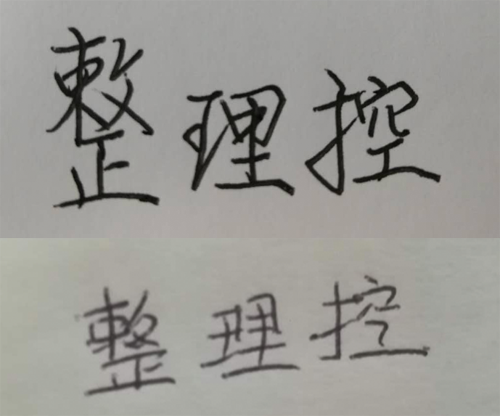 整理控
整理控